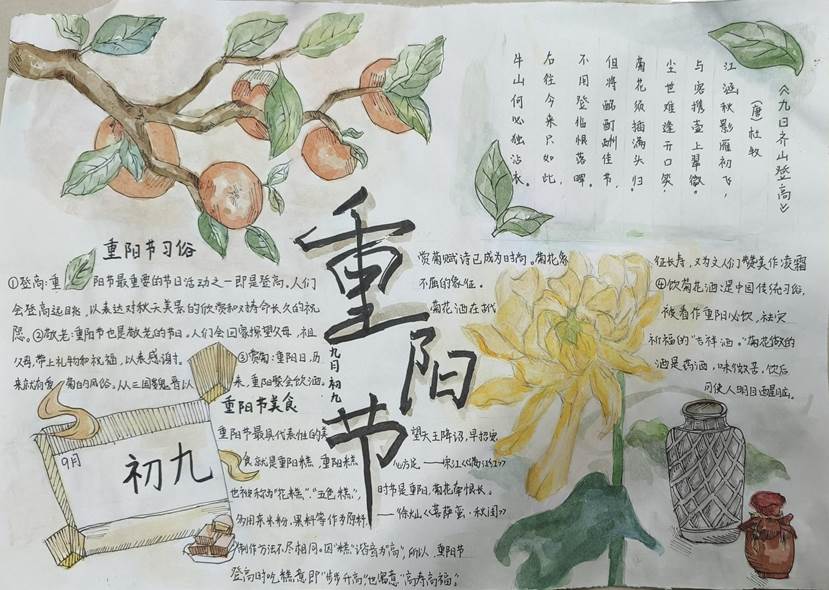 《九日齐山登高》
(唐)杜牧
江涵秋影雁初飞，
与客携壶上翠微。
尘世难逢开口笑，
菊花须插满头归。
但将酩酊酬佳节，
不用登临恨落晖。
古往今来只如此，
牛山何必独沾衣。
重阳节
九月初九
重阳节习俗
①登高:重阳节最重要的节日活动之一即是登高。人们
会登高远目兆，以表达对秋天美景的欣赏和对寿命长久的祝
愿。②敬老:重阳节也是敬老的节日。人们会回家探望父母、祖
父母,带上礼物和祝福，以表感谢。③赏菊:重阳日,历
来就有赏菊的风俗。从三国魏晋以来，重阳聚会饮酒、
赏菊赋诗已成为时尚。菊花象征长寿，又为文人们赞美作凌霜
不屈的象征。④饮菊花酒:是中国传统习俗,
菊花酒在古代被看作重阳必饮、祛灾
祈福的"吉祥酒。"菊花做的
酒是药酒，味微苦，饮后
可使人明目醒脑。
9月
初九
重阳节美食
重阳节最具代表性的美
食就是重阳糕，重阳糕
也被称为"花糕"、"五色糕",
多用米粉、果料等作为原料
制作方法不尽相同。因"糕"谐音为"高",所以，重阳节
登高时吃糕意即"步步升高"也寓意"高寿高福。"
望天王降诏,早招安
心方足。——宋江《满江红》
时节是重阳,菊花牵恨长。
——徐灿《菩萨蛮·秋闺》